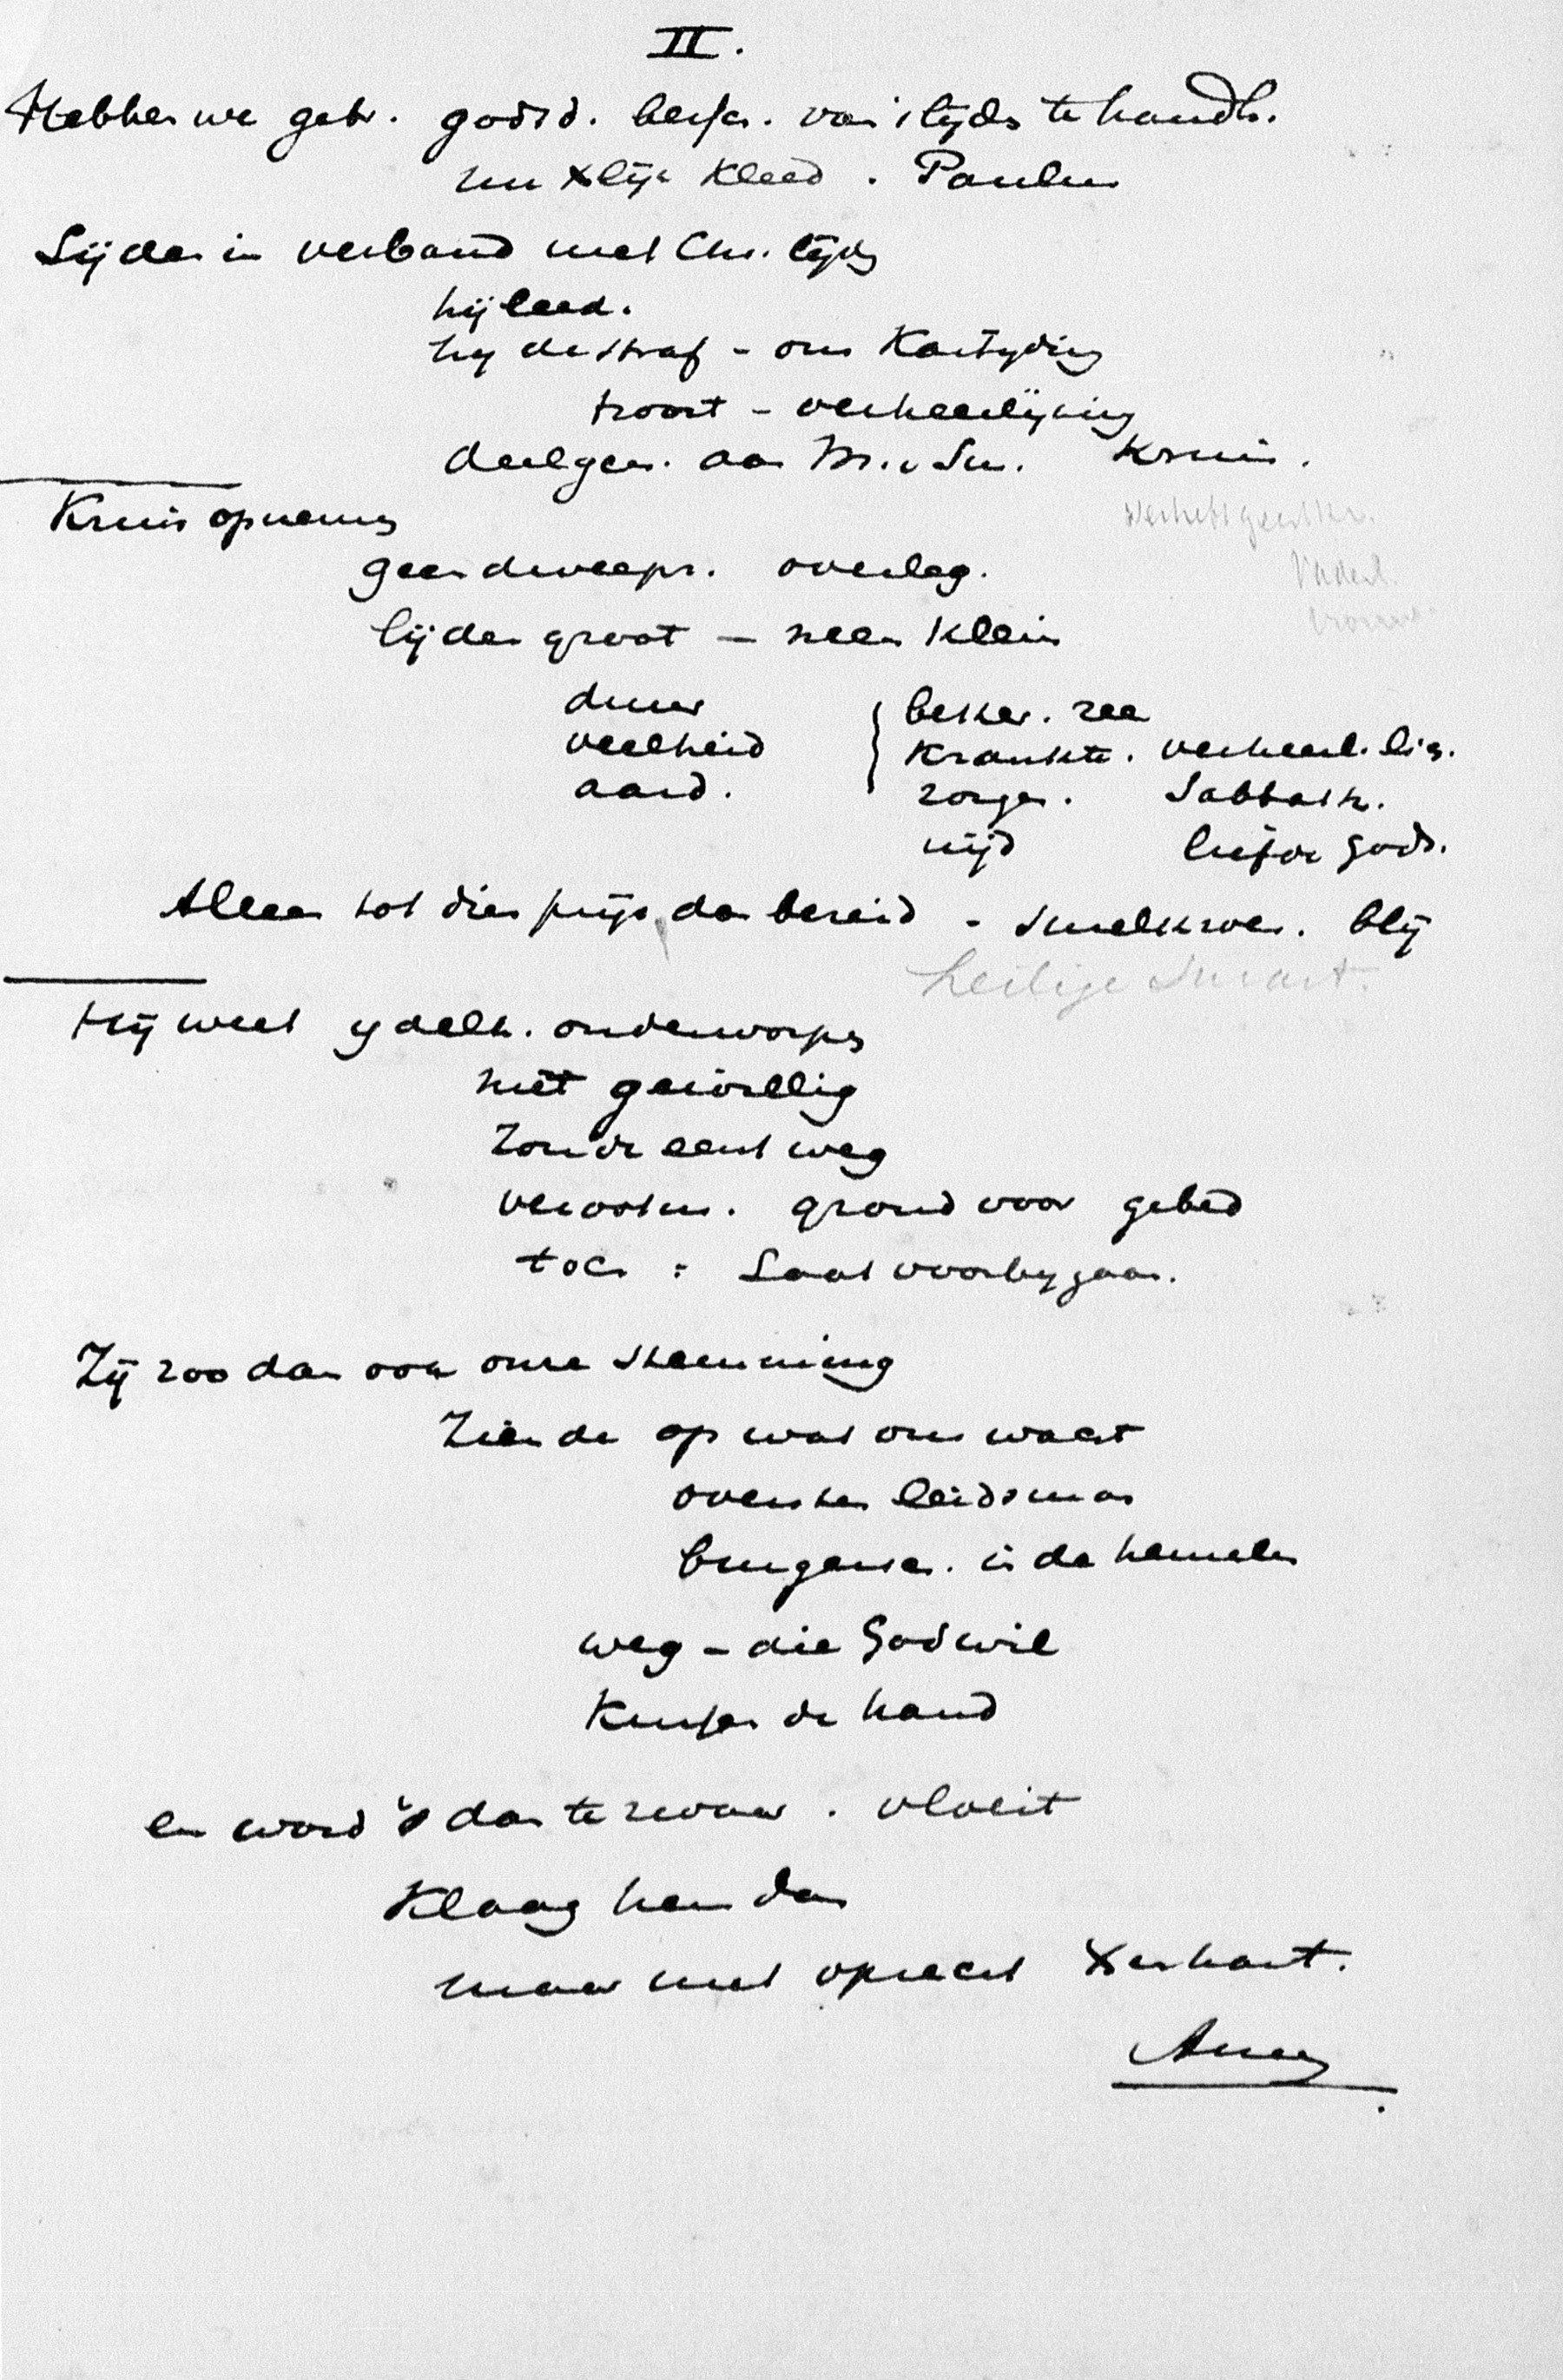 II.
Hebben we gebr. godsd. besch. van 't lijden te handh.
nu Xlijk kleed. Paulus
Lijden in verband met Chr. lijden
hij leed.
hij de straf - ons Kastijding
troost - verheerlijking
deelgen. aan M. v Sm. Kruis.
Kruis opnemen
geen dweepr. overleg.
lijden groot — neen klein
duur { beker. zee
veelheid krankte. verheerl. lig.
aard. zorgen. Sabbath.
nijd liefde Gods.
Alleen tot dien prijs dan bereid - smeltkroes. blij
heilige Smart.
Hij weet ydelh. onderworpen
niet gewillig
Zonde eerst weg
verootm. grond voor gebed
toch : Laat voorbygaan.
Zij zoo dan ook onze stemming
Ziende op wat ons wacht
oversten leidsman
burgersch. in de hemelen
weg - die God wil
Kussen de hand
en word 't dan te zwaar. vloeit
Klaag hem dan
maar met oprecht Xenhart.
Amen